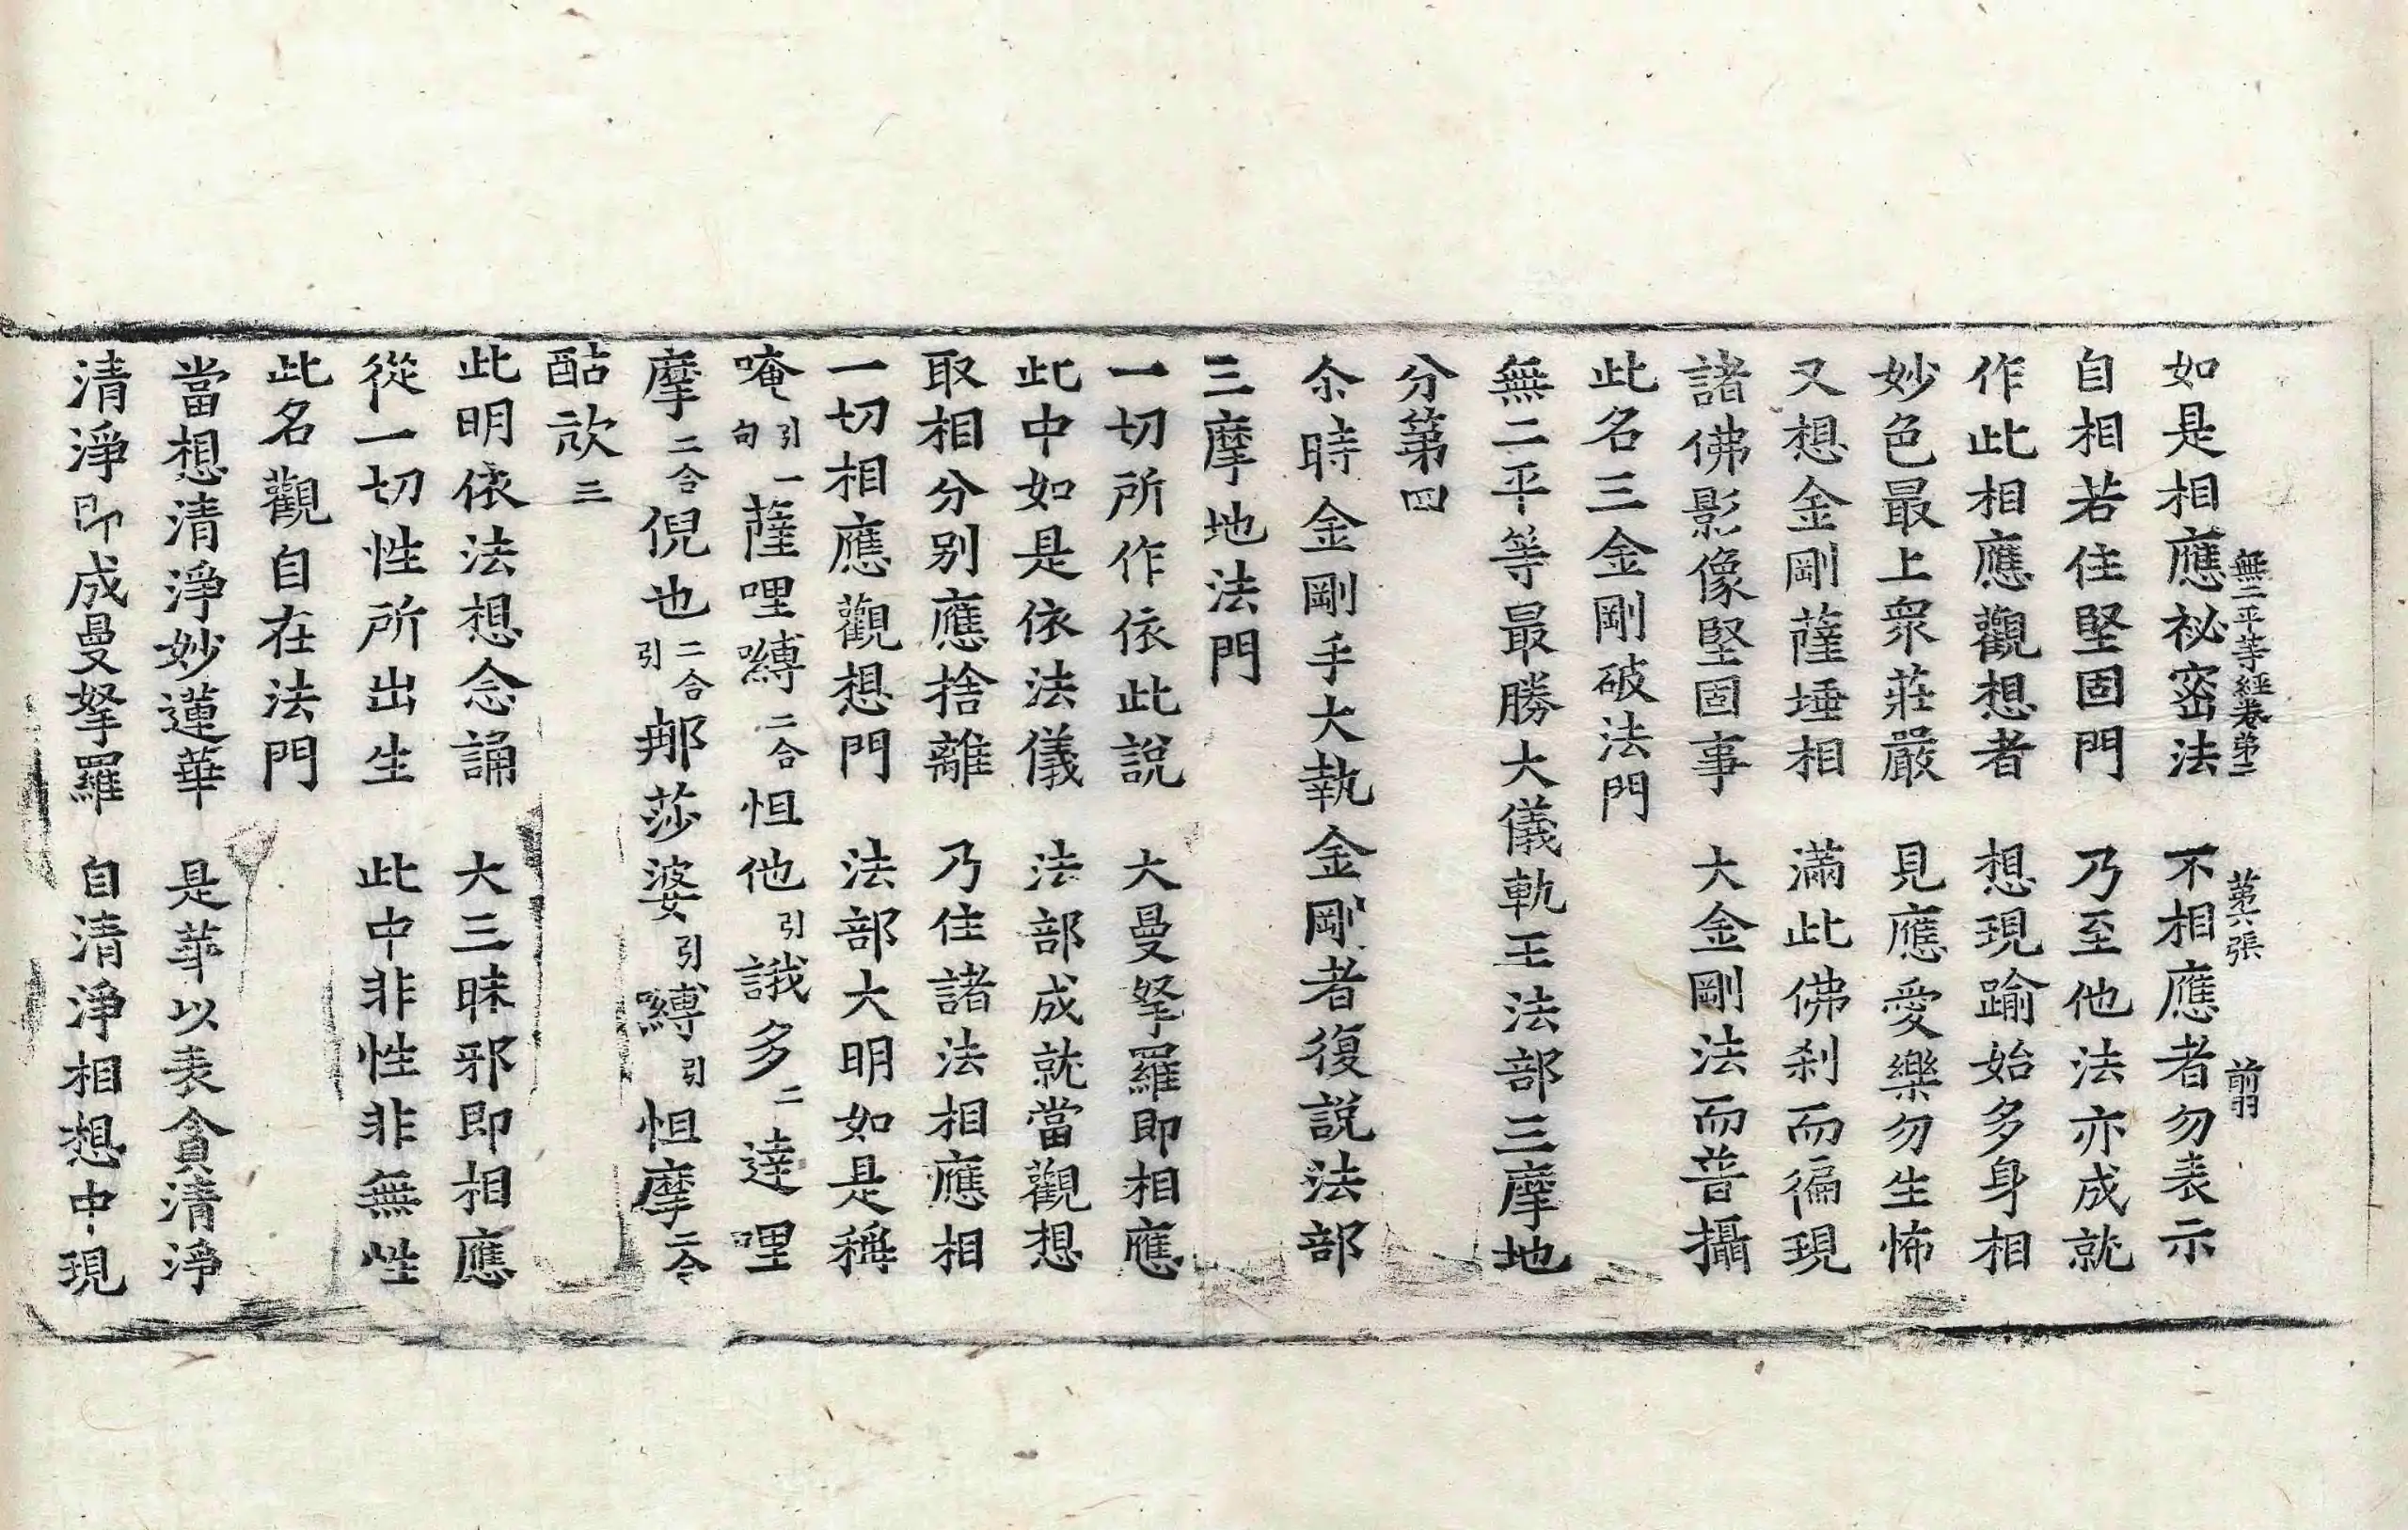 無二平等經卷第二 第六張 翦
如是相應祕密法 不相應者勿表示
自相若住堅固門 乃至他法亦成就
作此相應觀想者 想現踰始多身相
妙色最上衆莊嚴 見應愛樂勿生怖
又想金剛薩埵相 滿此佛剎而徧現
諸佛影像堅固事 大金剛法而普攝
此名三金剛破法門
無二平等最勝大儀軌王法部三摩地
分第四
尒時金剛手大執金剛者復說法部
三摩地法門
一切所作依此說 大曼拏羅即相應
此中如是依法儀 法部成就當觀想
取相分別應捨離 乃住諸法相應相
一切相應觀想門 法部大明如是稱
唵引一句薩哩嚩二合怛他引誐多二達哩
摩二合倪也二合引那莎婆引嚩引怛摩二合
酤欱三
此明依法想念誦 大三昧邪即相應
從一切性所出生 此中非性非無性
此名觀自在法門
當想清淨妙蓮華 是華以表貪清淨
清淨即成曼拏羅 自清淨相想中現